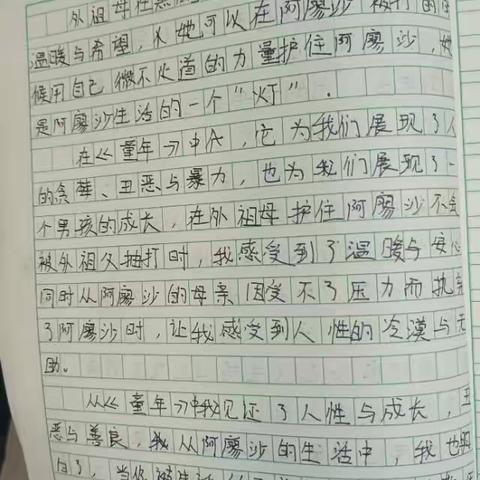 外祖母在黑
温暖与希望，从她可以在阿廖沙被打的
候用自己微不火道的力量护住阿廖沙，她
是阿廖沙生活的一个“灯”.
在《童年》中，它为我们展现了人
的贪婪、丑恶与暴力，也为我们展现了一
个男孩的成长，在外祖母护住阿廖沙不会
被外祖父抽打时，我感受到了温暖与安心
同时从阿廖沙的母亲因受不了压力而抛弃
了阿廖沙时，让我感受到人性的冷漠与无
助。
从《童年》中我见证了人性与成长，丑
恶与善良，我从阿廖沙的生活中，我也明
白了，当你被生活